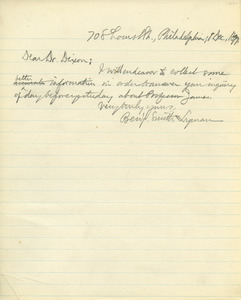 708 Locust St., Philadelphia, 1 Dec., 
Dear Dr. Dixon;
I will endeavor to collect some
better
accurate information in order to answer your inquiry
of day before yesterday about Professor James.
Very truly yours,
Benj. Smith Lyman